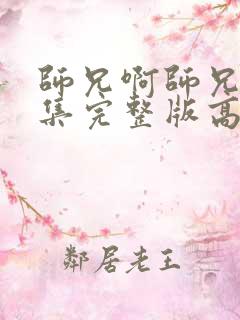 師兄啊師兄
集完整版高
鄰居老王